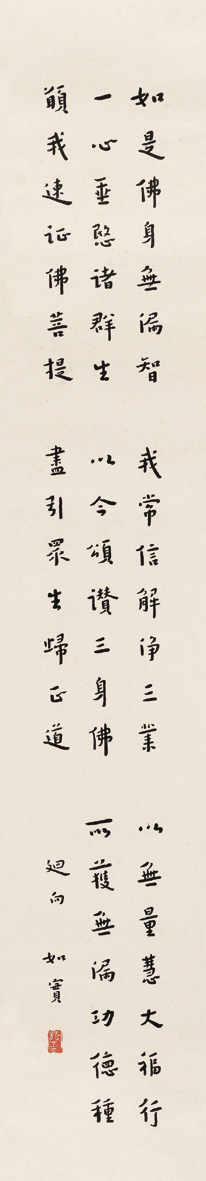 如是佛身無漏智　我常信解淨三業　以無量慧大福行
一心垂愍諸群生　以今頌讚三身佛　所獲無漏功德種
願我速証佛菩提　盡引眾生歸正道　迴向　如實